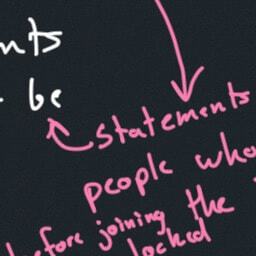 nts
be
statements
people who
before joining the
locked